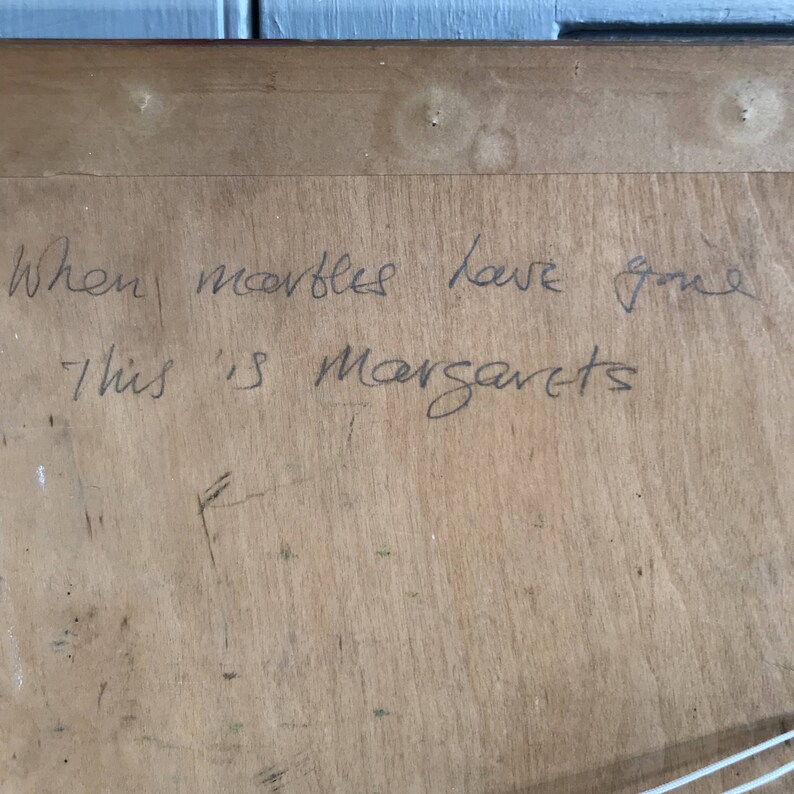 When marbles have gone
This is Margarets